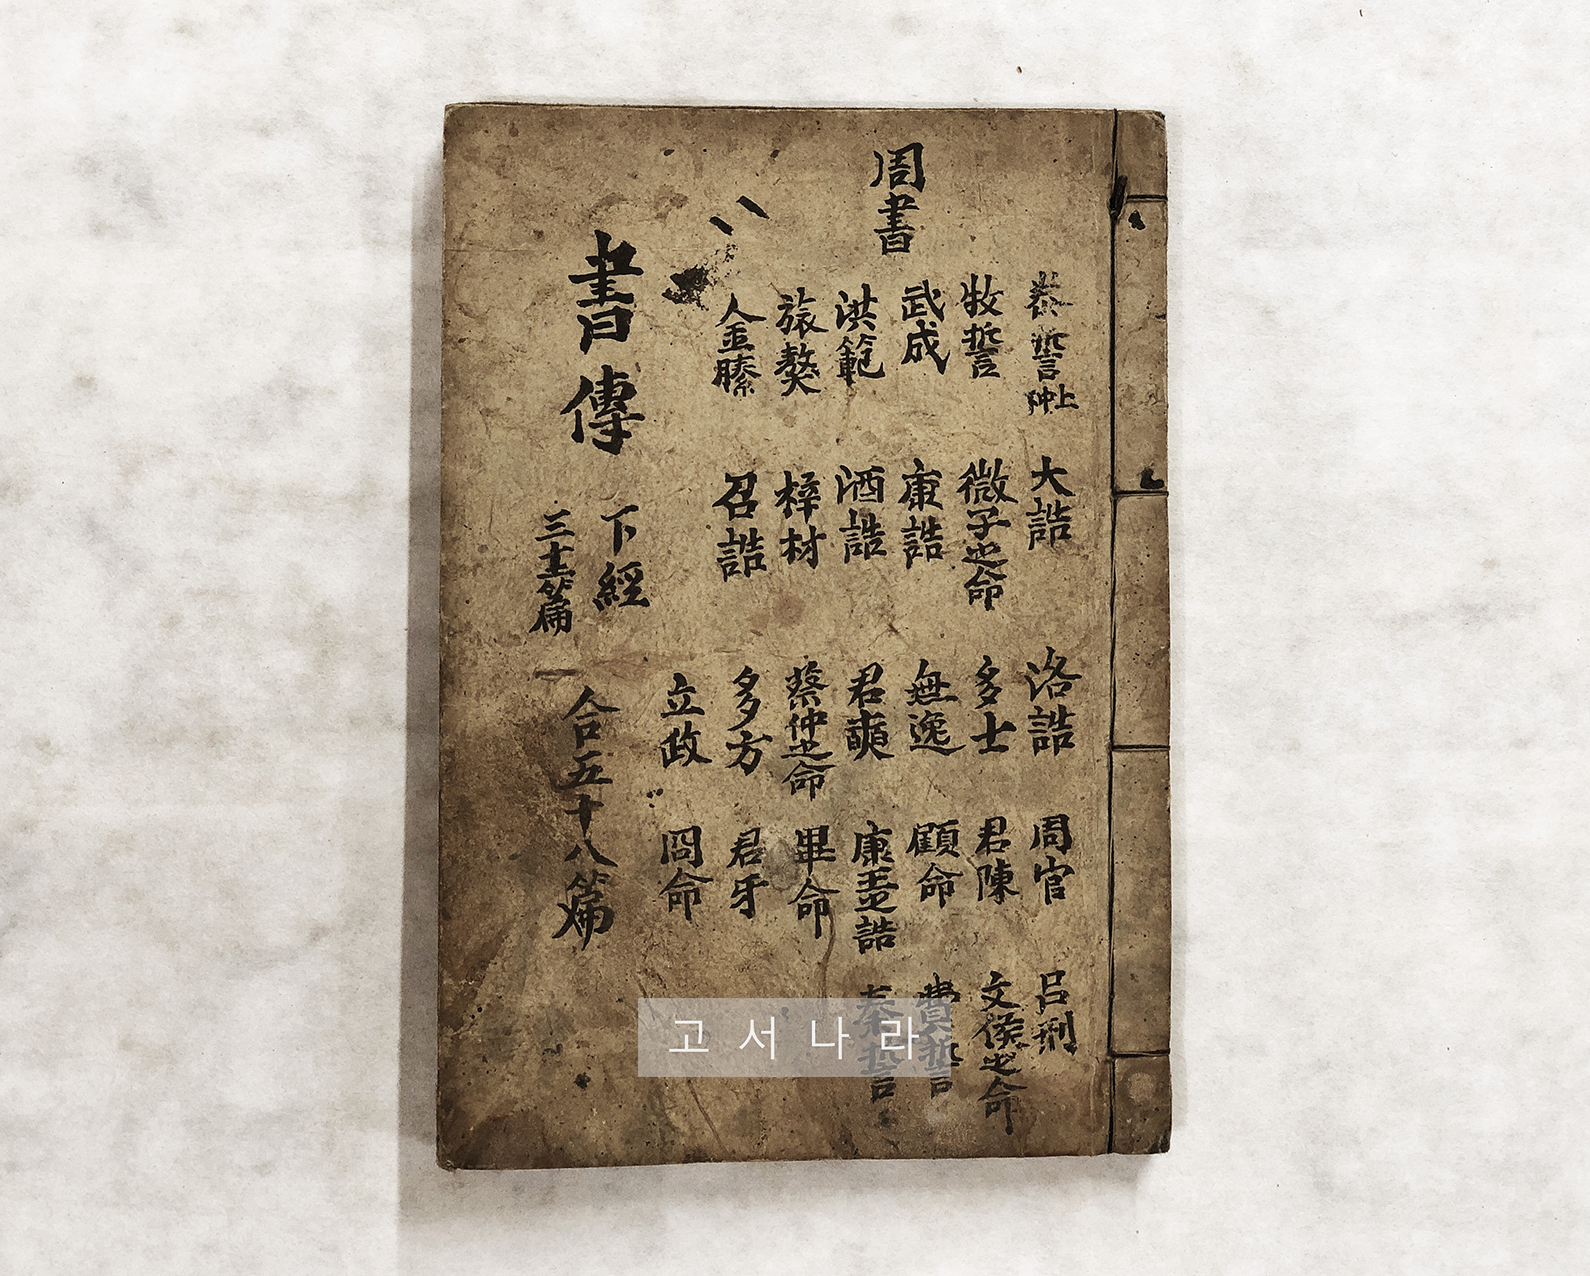 周書
泰誓上仲
牧誓
武成
洪範
旅獒
金縢
大誥
微子之命
康誥
酒誥
梓材
召誥
洛誥
多士
無逸
君奭
蔡仲之命
多方
立政
周官
君陳
顧命
康王之誥
畢命
君牙
冏命
呂刑
文侯之命
費誓
秦誓
書傳
下經
合五十八篇
고서나라